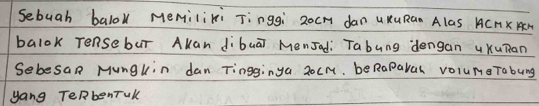 Sebuah balok Memiliki Tinggi 20cm dan ukuran Alas 14cm x 14cm
balok Tersebut Akan dibuat Menjadi Tabung dengan ukuran
Sebesar Mungkin dan Tingginya 20cm. berapakah volume Tabung
yang Terbentuk